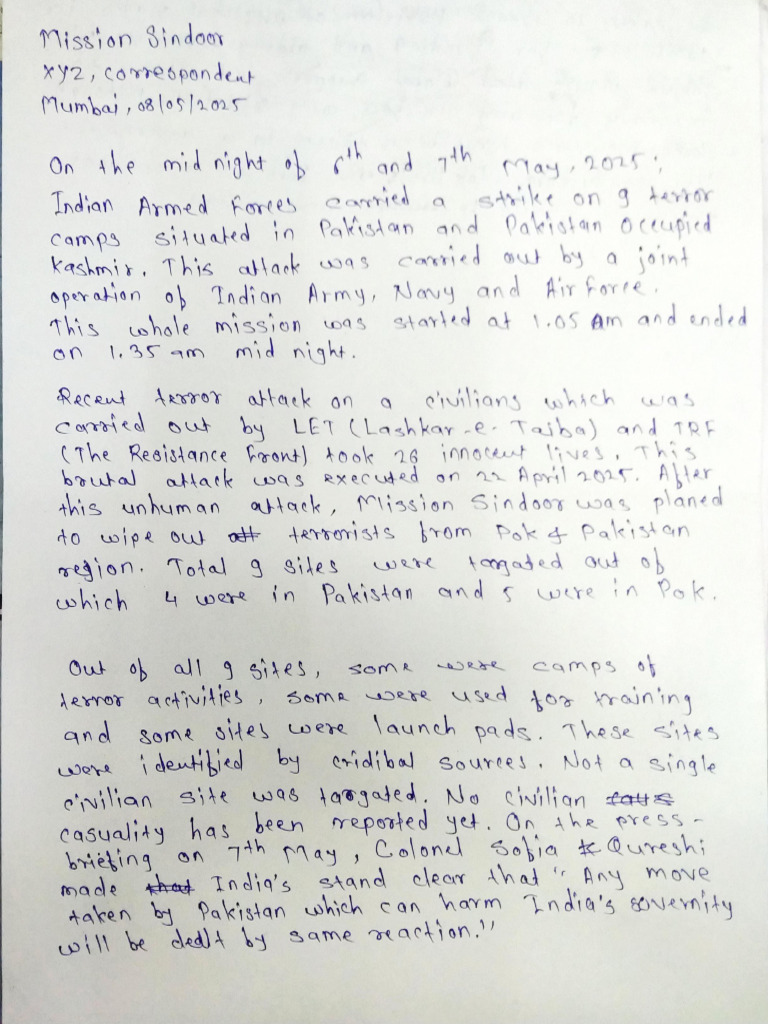 Mission Sindoor
xyz, correspondent
Mumbai, 08/05/2025
On the mid night of 6th and 7th May, 2025;
Indian Armed Forces carried a strike on 9 terror
camps situated in Pakistan and Pakistan Occupied
Kashmir. This attack was carried out by a joint
operation of Indian Army, Navy and Air Force.
This whole mission was started at 1.05 Am and ended
on 1.35 am mid night.
Recent terror attack on a civilians which was
carried out by LET (Lashkar-e-Taiba) and TRF
(The Resistance Front) took 26 innocent lives. This
brutal attack was executed on 22 April 2025. After
this unhuman attack, Mission Sindoor was planed
to wipe out terrorists from Pok & Pakistan
region. Total 9 sites were taragated out of
which 4 were in Pakistan and 5 were in Pok.
Out of all 9 sites, some were camps of
terror activities, some were used for training
and some sites were launch pads. These sites
were identified by cridibal sources. Not a single
civilian site was taragated. No civilian
casuality has been reported yet. On the press-
briefing on 7th May, Colonel Sofia Qureshi
made India's stand clear that "Any move
taken by Pakistan which can harm India's sovernity
will be dealt by same reaction."